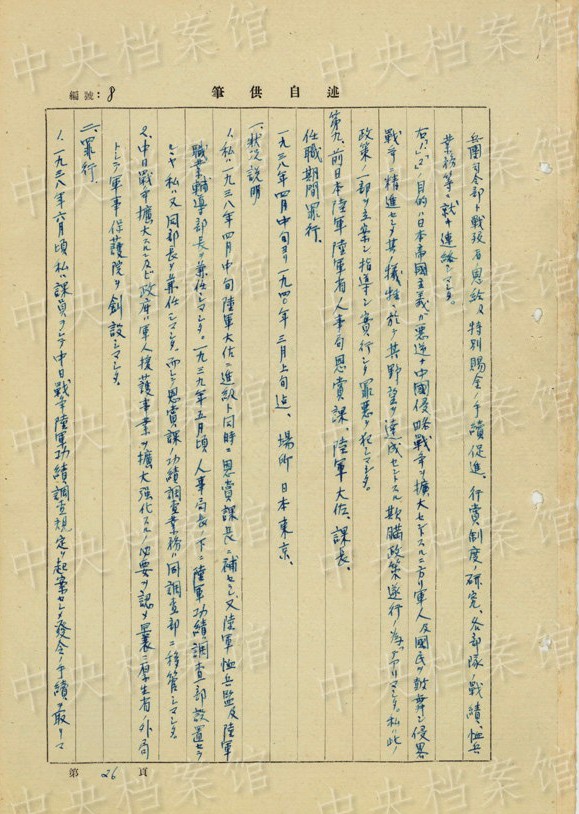 述自供筆
編號：8
兵團司令部ト戰歿者恩給及特別賜金ノ手續促進、行賞制度ノ研究、各部隊ノ戰績、恤兵
業務等ニ就キ連絡シマシタ。
右ノ目的ハ日本帝國主義ガ悪逆ナ中國侵略戰爭ヲ擴大セントスルニ方リ軍人及國民ヲ鼓舞シ侵略
戰爭ニ精進セシメ其ノ犠牲ニ於テ其野望ヲ達成セントスル欺瞞政策遂行ノ為デアリマシタ。私ハ此
政策ノ一部ヲ立案シ指導シ實行シタ罪悪ヲ犯シマシタ。
第九、前日本陸軍陸軍省人事局恩賞課、陸軍大佐、課長、
任職期間罪行、
一九三八年四月中旬ヨリ一九四〇年三月上旬迄、場所 日本東京、
一、狀況説明
1、私ハ一九三八年四月中旬陸軍大佐ニ進級ト同時ニ恩賞課長ニ補セラレ又陸軍恤兵監及陸軍
職業輔導部長ヲ兼任シマシタ。一九三九年五月頃人事局長ノ下ニ陸軍功績調査部設置セラ
レルヤ私ハ又同部長ヲ兼任シマシタ、而シテ恩賞課ノ功績調査業務ハ同調査部ニ移管シマシタ。
2、中日戰爭擴大スルニ及ビ政府ハ軍人援護事業ヲ擴大強化スルノ必要ヲ認メ曩ニ厚生省ノ外局
トシテ軍事保護院ヲ創設シマシタ。
二、罪行、
1、一九三八年六月頃私ハ課員ヲシテ中日戰爭陸軍功績調査規定ヲ起案セシメ發令ノ手續ヲ取リマ
第26頁
中央档案馆
中央档案馆
中央档案馆
中央档案馆
中央档案馆
中央档案馆